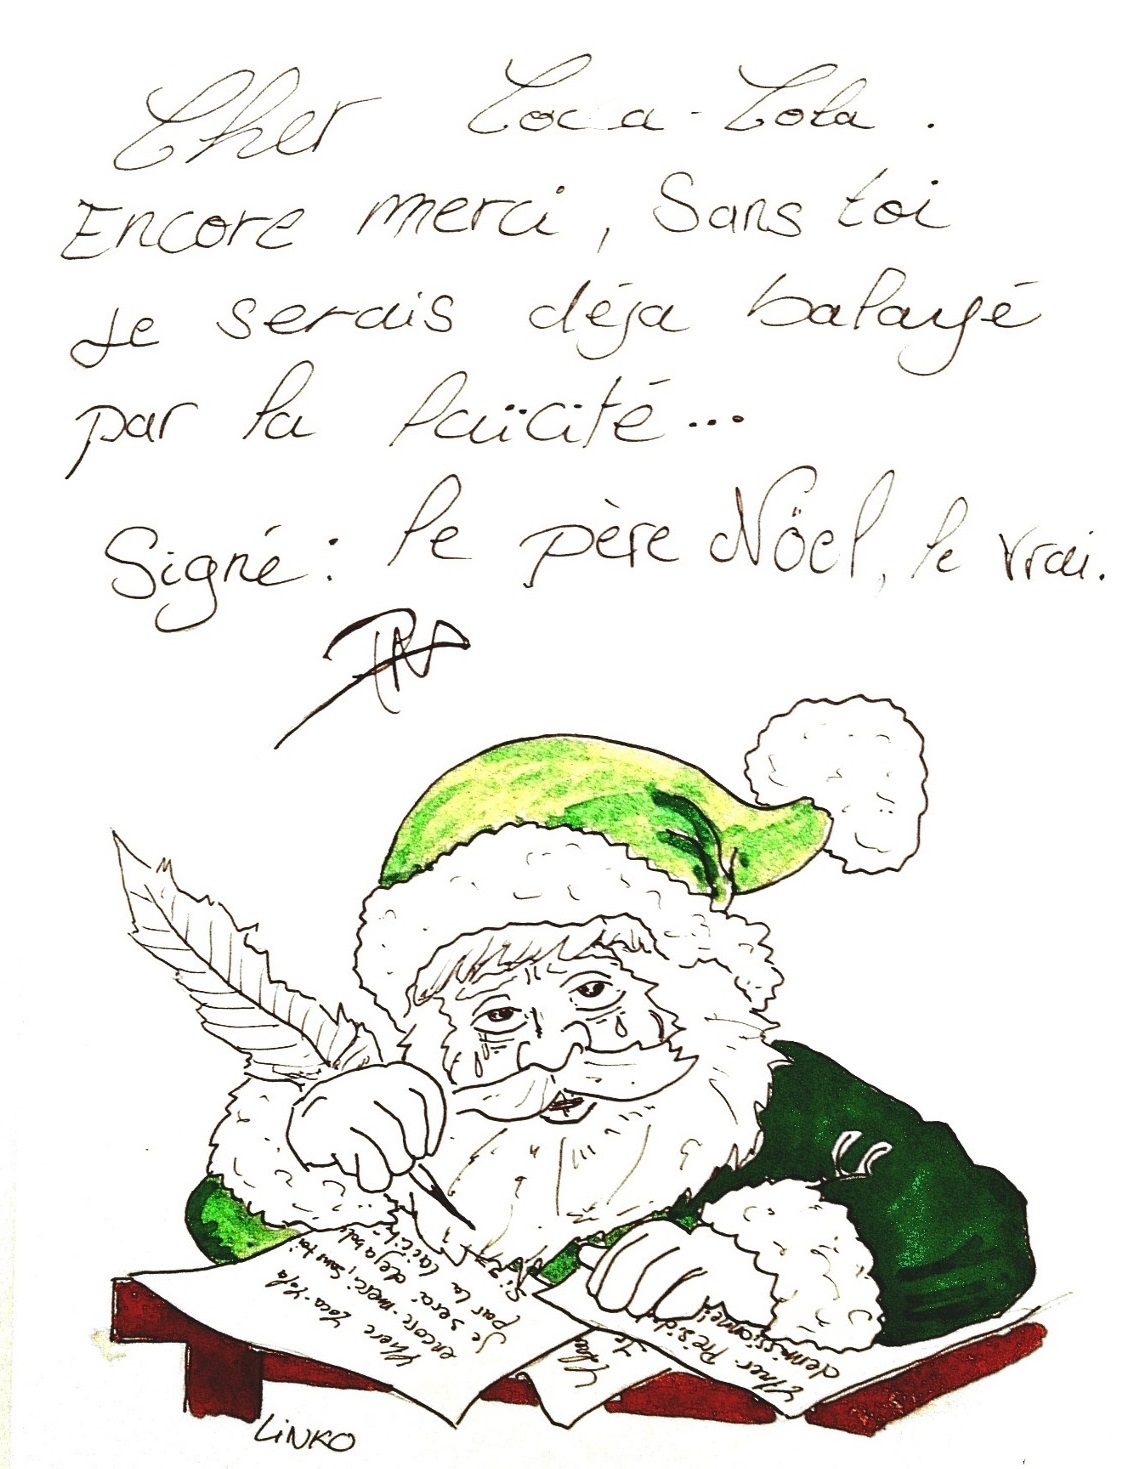 Cher Coca-Cola.
Encore merci, Sans toi
Je serais déja balayé
par la laïcité...
Signé: le père Nöel, le vrai.
PN
Chere Coca-Cola
encore merci, Sans toi
Je serai deja bala
par la laïcité
Sig
Cher Présid
demissionne
LiNKO